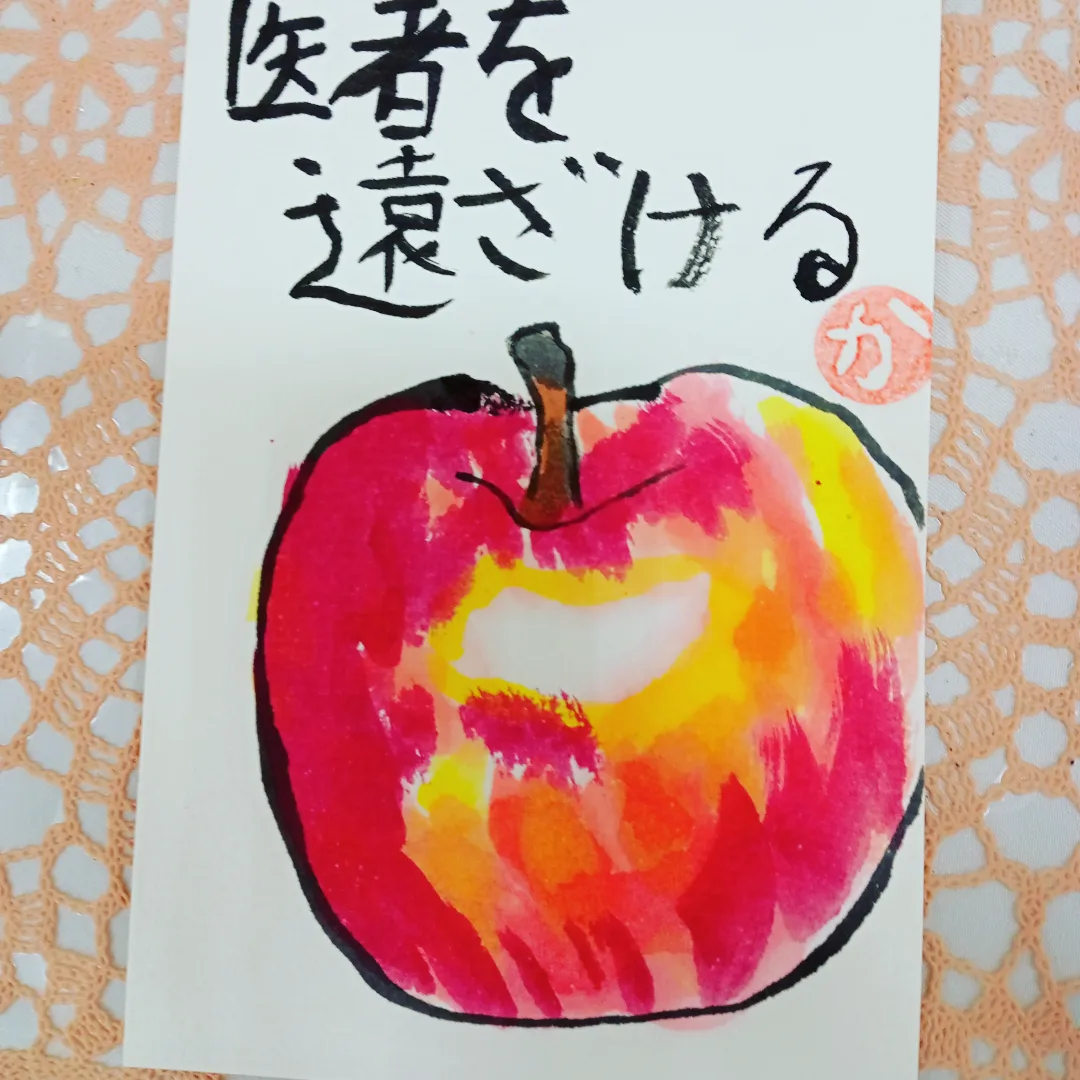 医者を
遠ざける
か